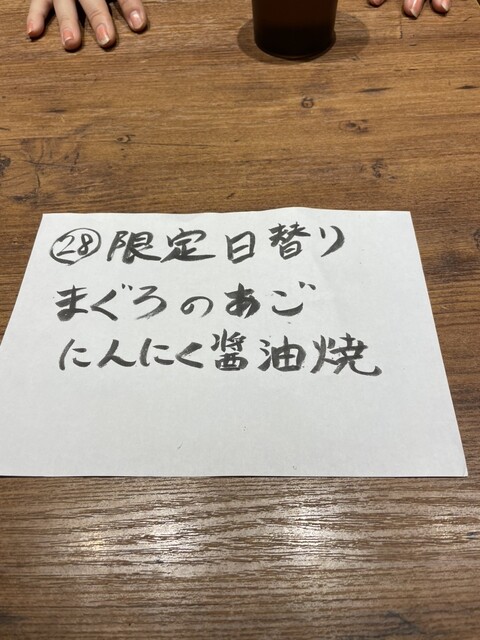 ㉘限定日替り
まぐろのあご
にんにく醤油焼